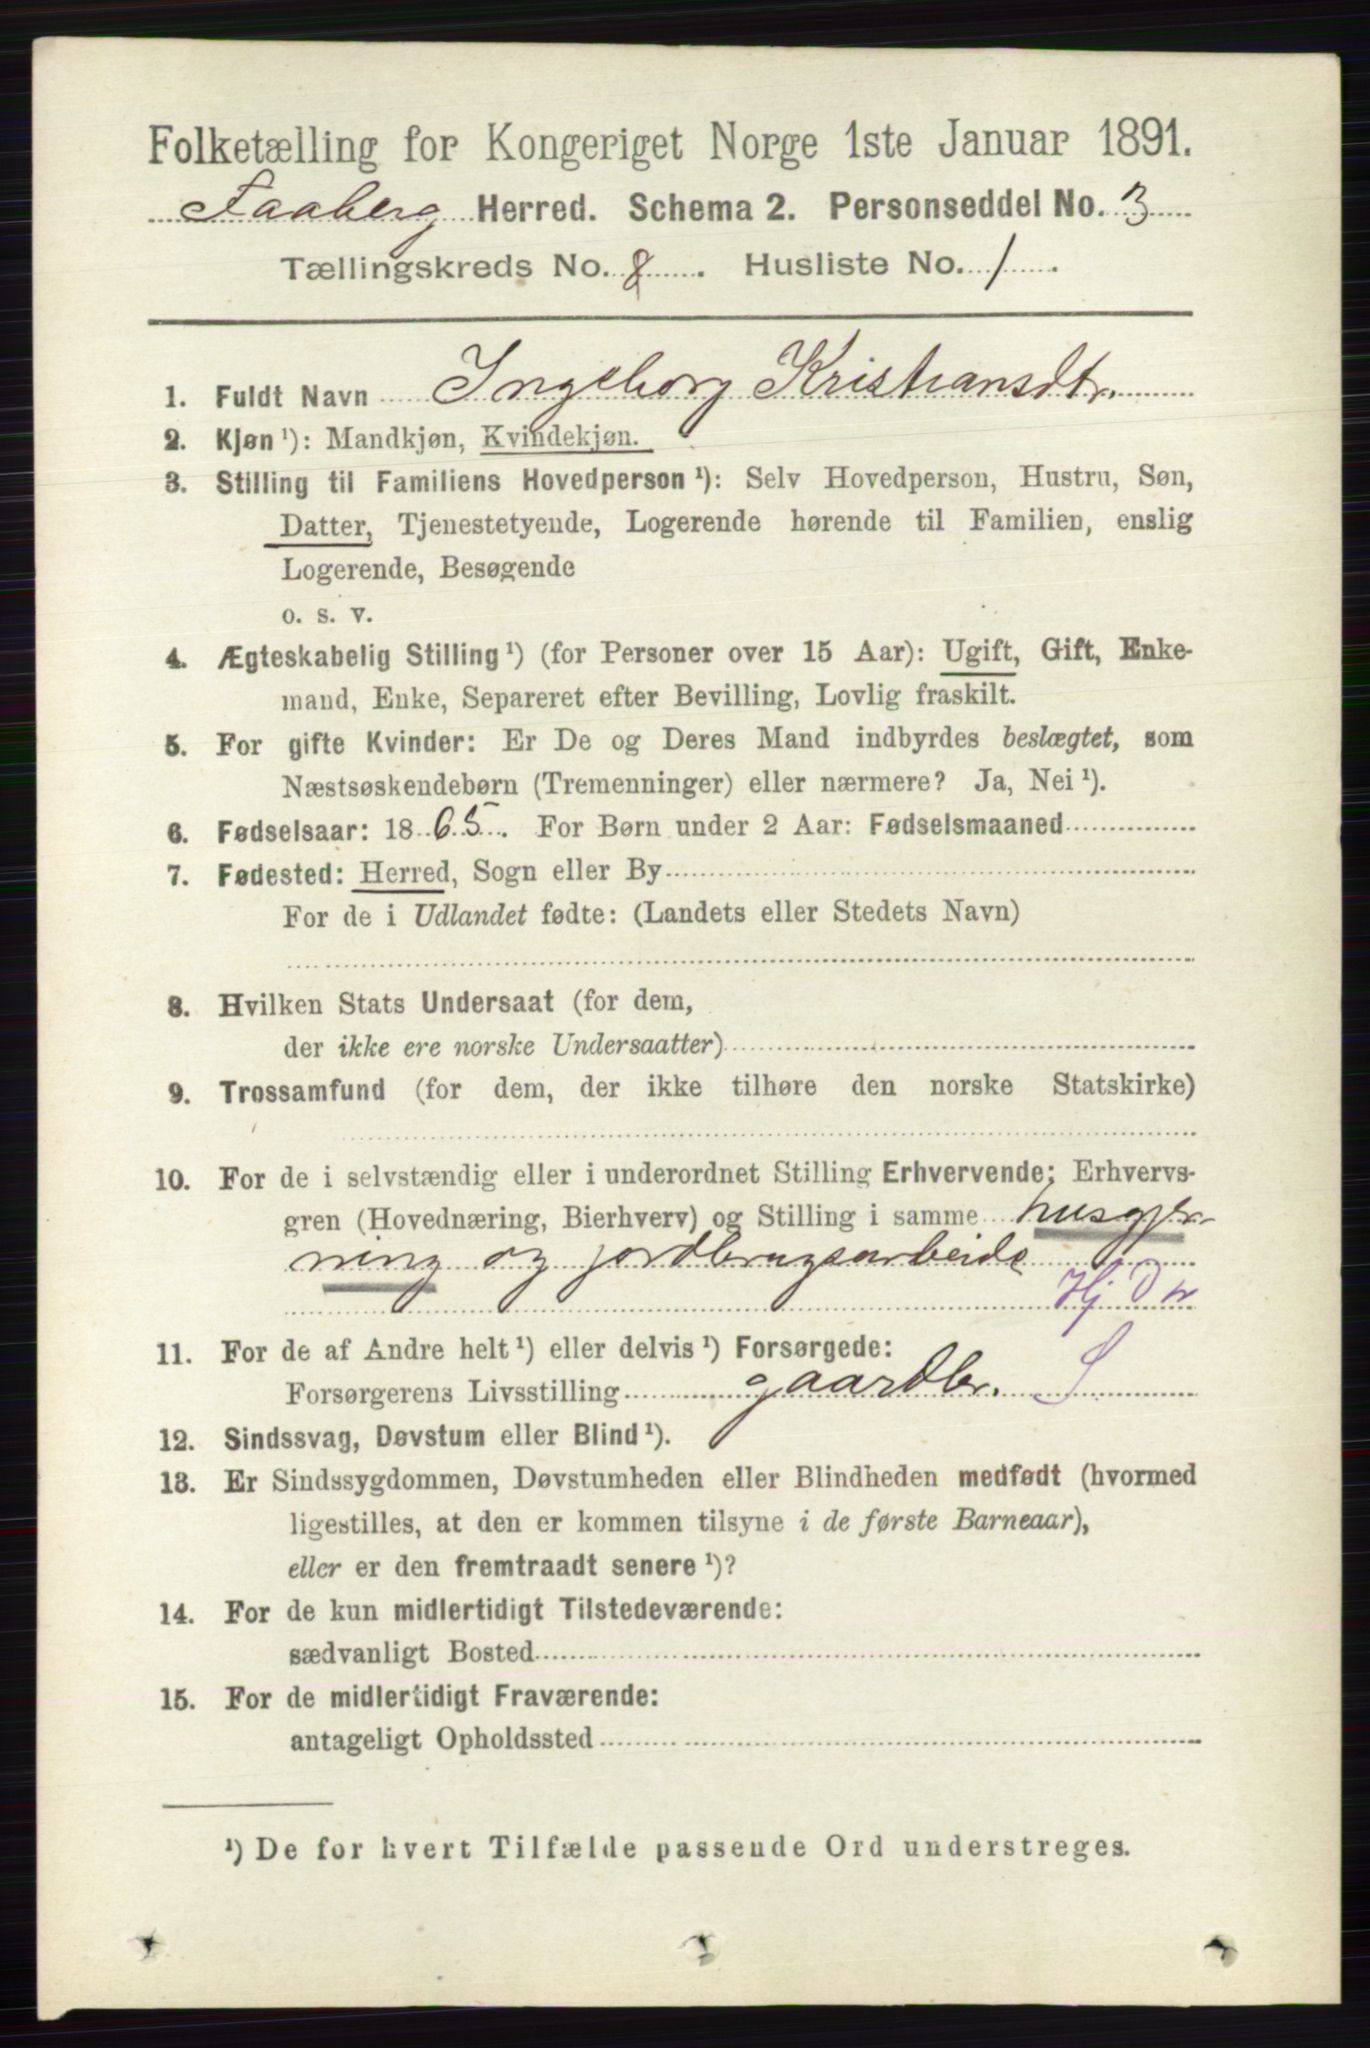 Folketælling for Kongeriget Norge 1ste Januar 1891.
Faaberg Herred. Schema 2. Personseddel No. 3
Tællingskreds No. 8. Husliste No. 1.
1. Fuldt Navn Ingeborg Kristiansdtr.
2. Kjøn ¹): Mandkjøn, Kvindekjøn.
3. Stilling til Familiens Hovedperson ¹): Selv Hovedperson, Hustru, Søn,
Datter, Tjenestetyende, Logerende hørende til Familien, enslig
Logerende, Besøgende
o. s. v.
4. Ægteskabelig Stilling ¹) (for Personer over 15 Aar): Ugift, Gift, Enke-
mand, Enke, Separeret efter Bevilling, Lovlig fraskilt.
5. For gifte Kvinder: Er De og Deres Mand indbyrdes beslægtet, som
Næstsøskendebørn (Tremenninger) eller nærmere? Ja, Nei ¹).
6. Fødselsaar: 1865. For Børn under 2 Aar: Fødselsmaaned
7. Fødested: Herred, Sogn eller By
For de i Udlandet fødte: (Landets eller Stedets Navn)
8. Hvilken Stats Undersaat (for dem,
der ikke ere norske Undersaatter)
9. Trossamfund (for dem, der ikke tilhøre den norske Statskirke)
10. For de i selvstændig eller i underordnet Stilling Erhvervende: Erhvervs-
gren (Hovednæring, Bierhverv) og Stilling i samme husgjer-
ning og jordbrugsarbeide
Hj D
11. For de af Andre helt ¹) eller delvis ¹) Forsørgede:
Forsørgerens Livsstilling gaardbr. S
12. Sindssvag, Døvstum eller Blind ¹).
13. Er Sindssygdommen, Døvstumheden eller Blindheden medfødt (hvormed
ligestilles, at den er kommen tilsyne i de første Barneaar),
eller er den fremtraadt senere ¹)?
14. For de kun midlertidigt Tilstedeværende:
sædvanligt Bosted
15. For de midlertidigt Fraværende:
antageligt Opholdssted
¹) De for hvert Tilfælde passende Ord understreges.